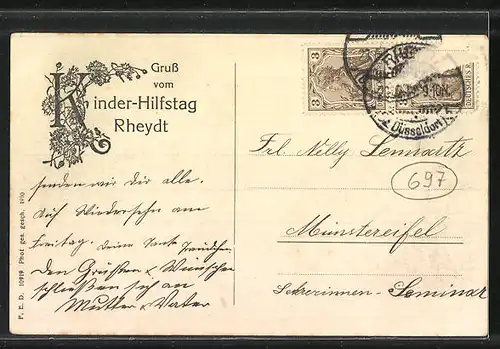 Gruß
vom
Kinder-Hilfstag
Rheydt
senden wir dir alle.
Auf Wiedersehn am
Freitag. Deine Tante
Den Grüßen & Wünschen
schließen sich an
Mutter & Vater
P. E. D. 10919 Phot. ges. gesch. 1910
3 3
DEUTSCHES R
RHEY
9-10N.
Düsseldorf
Frl. Nelly Lennartz
697
Münstereifel
Lehrerinnen-Seminar